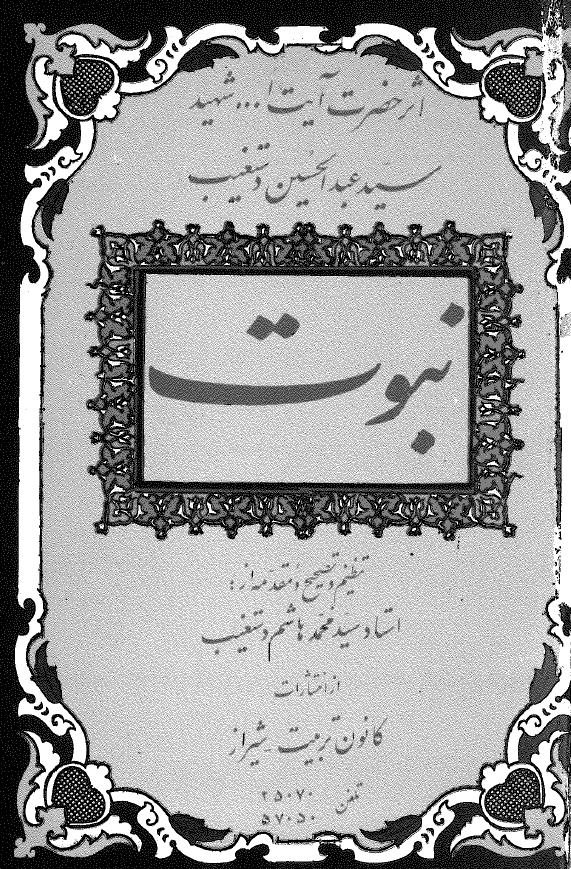 اثر حضرت آیت ا... شهید
سید عبدالحسین دستغیب
نبوت
تنظیم و تصحیح و مقدمه از :
استاد سید محمد هاشم دستغیب
از انتشارات
کانون تربیت شیراز
تلفن
۲۵۰۷۰
۵۷۰۵۰